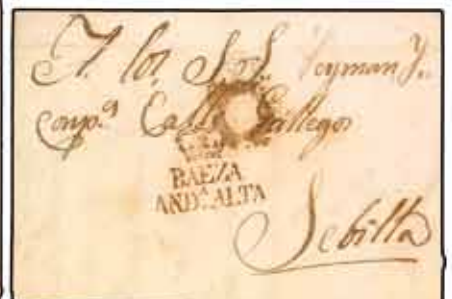 A los S.res
y
Comp.a Calle Gallegos
BAEZA
AND.A ALTA
Sebilla